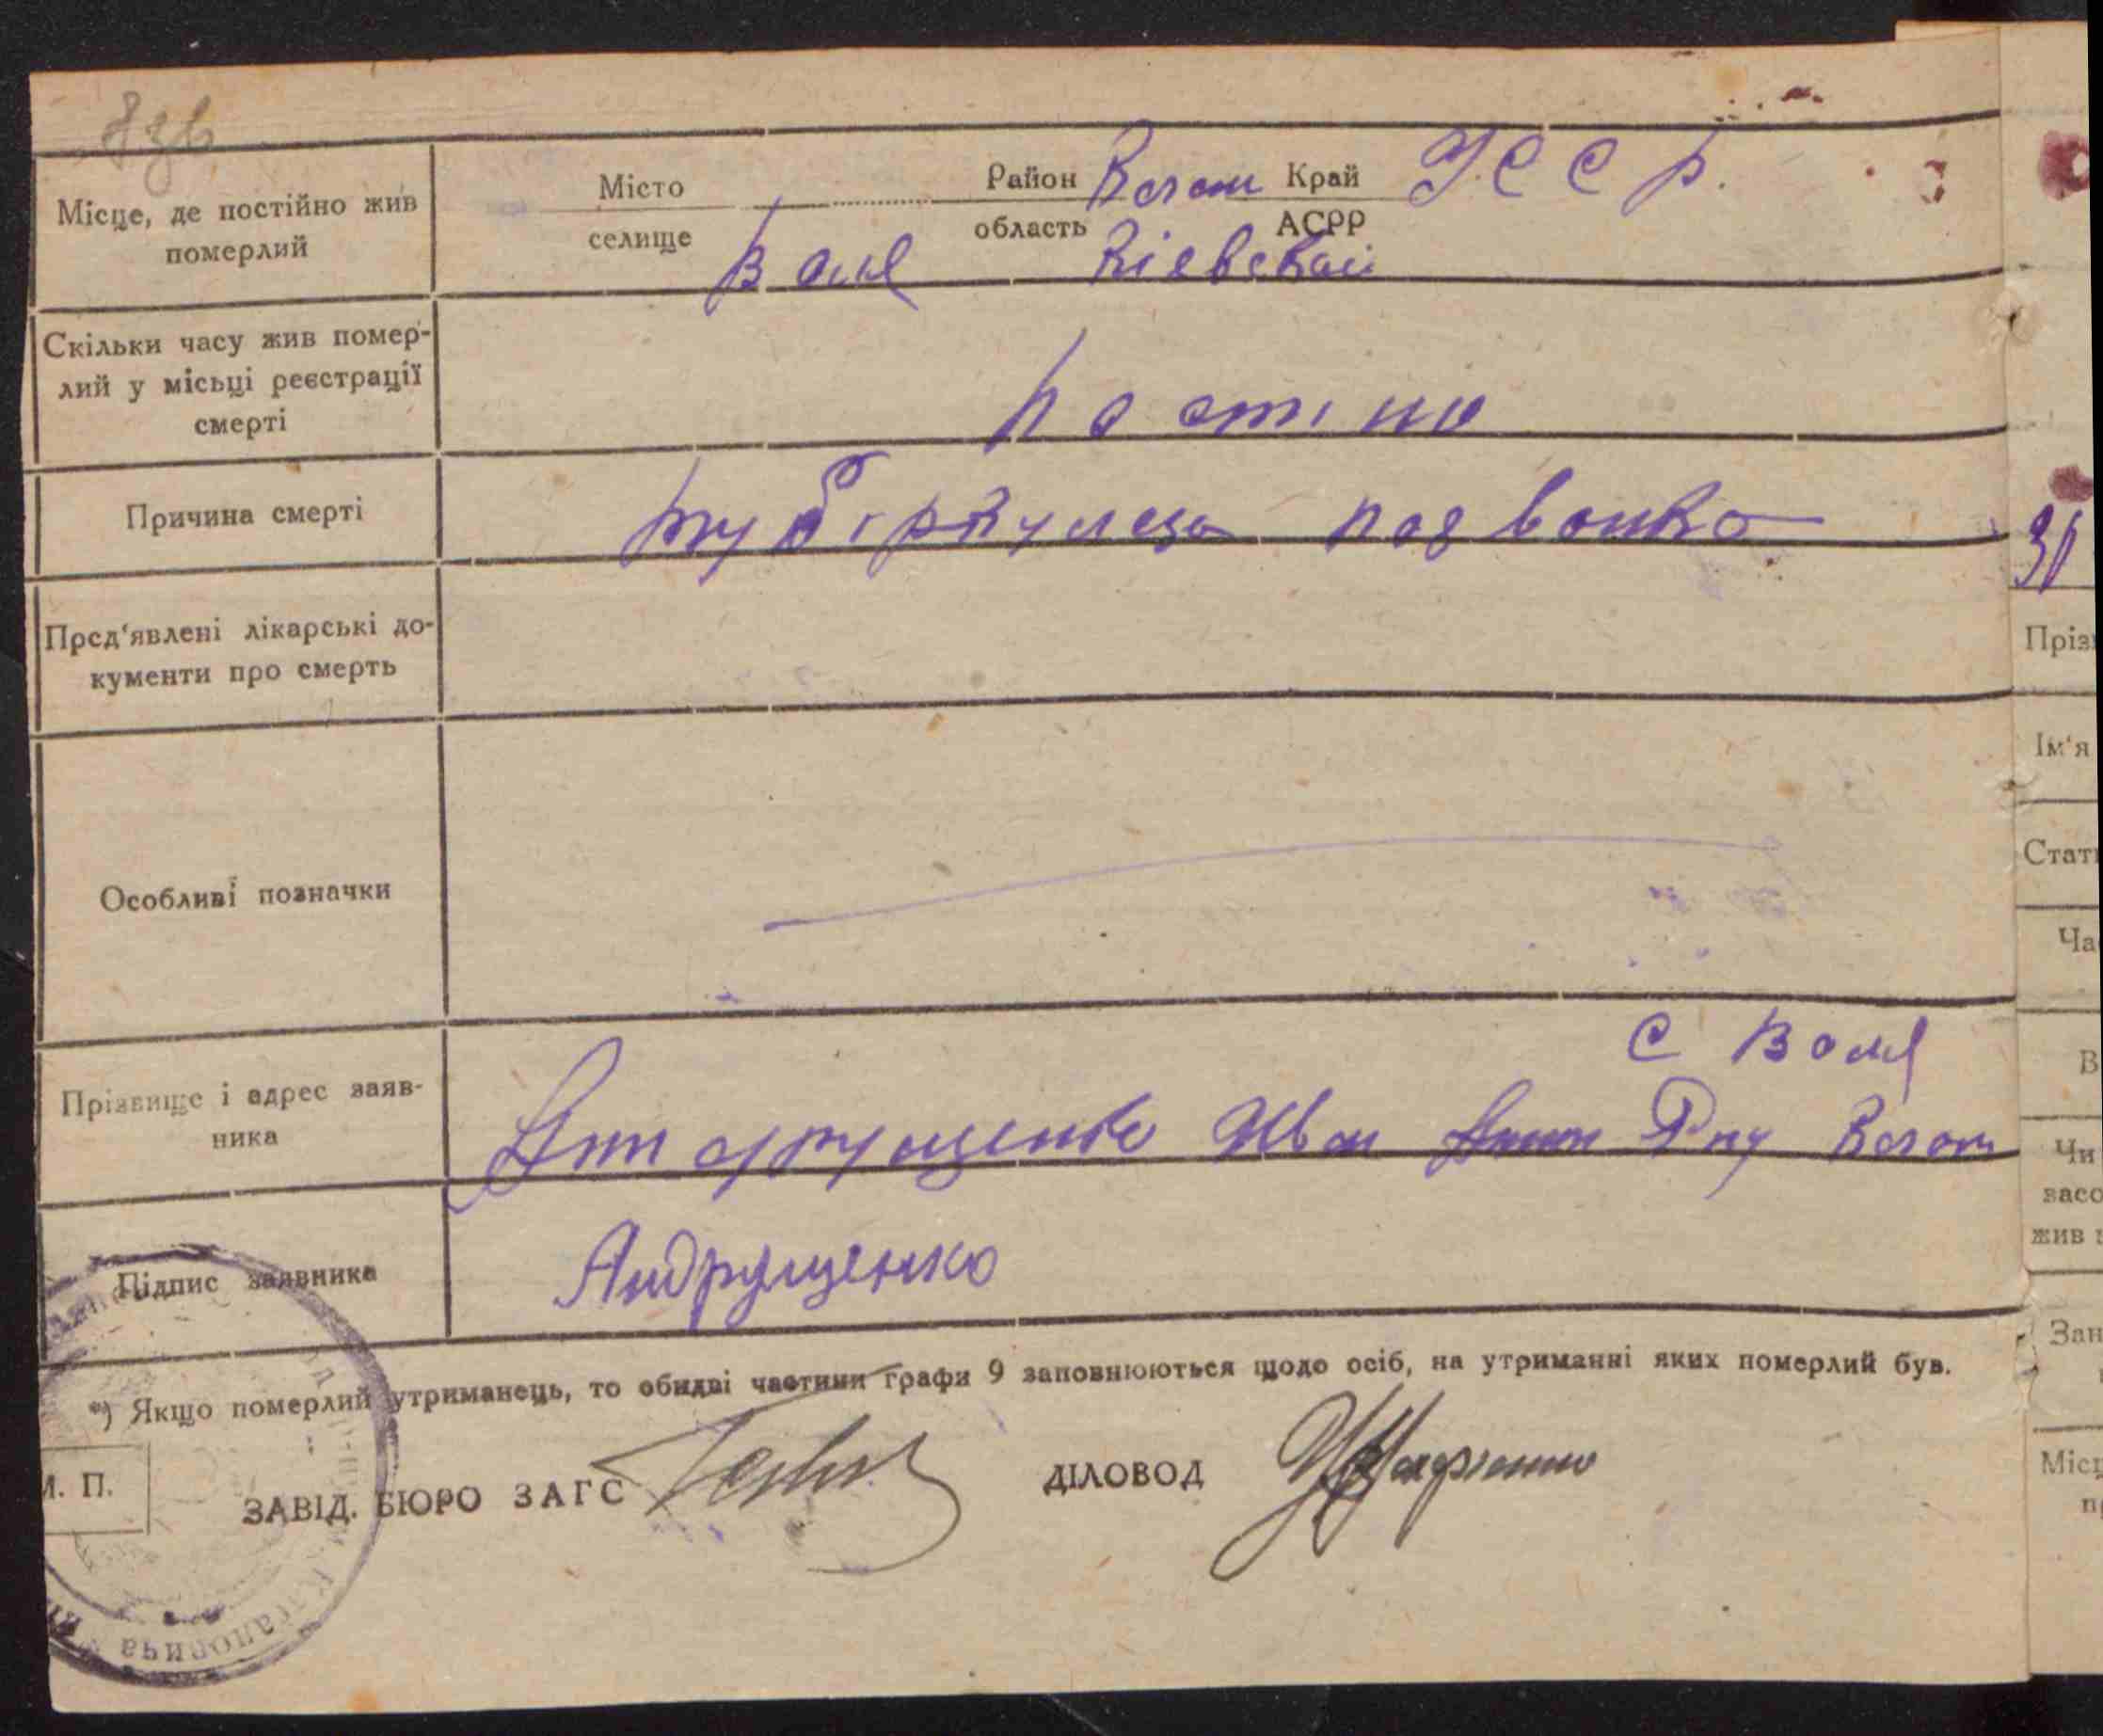 Місце, де постійно жив
померлий
Місто
селище
Воля
Район Каган
область Кієвской
Край
АСРР
УССР.
Скільки часу жив помер-
лий у місьці реєстрації
смерті
постіно
Причина смерті
тубіркульоза позвонка
Пред'явлені лікарські до-
кументи про смерть
Особливі позначки
Прізвище і адрес заяв-
ника
с Воля
Іван Каган
Підпис заявника
Андрущенко
*) Якщо померлий утриманець, то обидві частини графи 9 заповнюються щодо осіб, на утриманні яких померлий був.
М. П.
ЗАВІД. БЮРО ЗАГС
ДІЛОВОД
Кагановича
Прізв
Ім'я
Стат
Ча
В
Чи
засо
жив
Зан
Місц